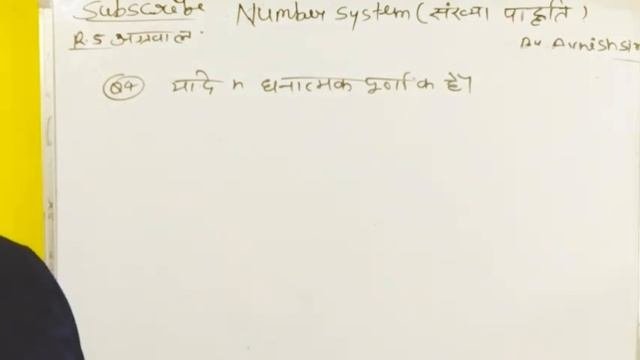 Subscribe Number system (संख्या पद्धति)
R.S अग्रवाल
Av. Avnish sir
Q4 यदि n धनात्मक पूर्णांक है।